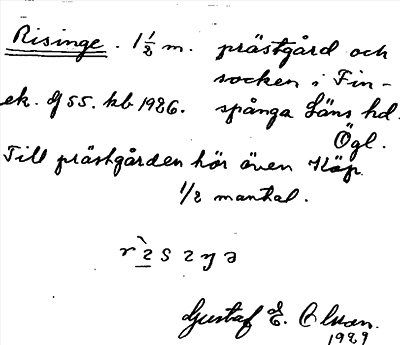 Risinge. 1 1/2 m. prästgård och
socken i Fin-
ek. g 55. kb 1926. spånga Läns hd.
Ögl.
Till prästgården hör även Köp
1/2 mantal.
Gustaf E. Olson.
1929